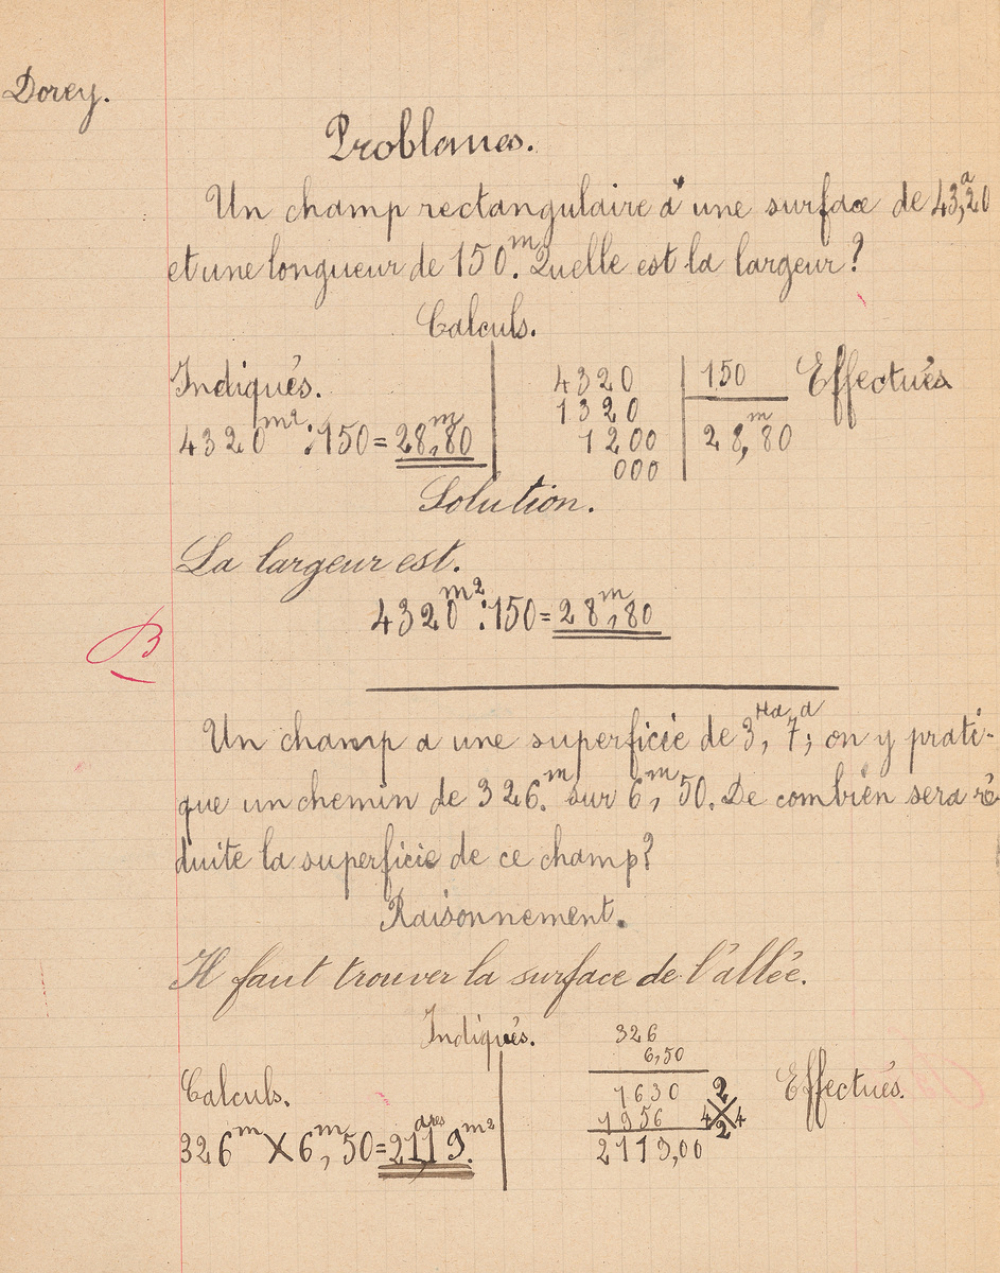 Dorey.
Problemes.
Un champ rectangulaire a une surface de 43,a20
et une longueur de 150.m Quelle est la largeur?
Calculs.
Indiqués.
4320m2:150=28,m80
4320 | 150 Effectués
1320
1200 | 28,m80
000
Solution.
La largeur est.
4320m2:150=28,m80
B
Un champ a une superficie de 3,Ha 7,a; on y prati-
que un chemin de 326.m sur 6,m50. De combien sera ré
duite la superficie de ce champ?
Raisonnement.
Il faut trouver la surface de l'allée.
Indiqués.
Calculs.
326m X 6,m50=21,ares19.m2
326 Effectués.
6,50
1630
1956
2119,00
2
4 X 4
2